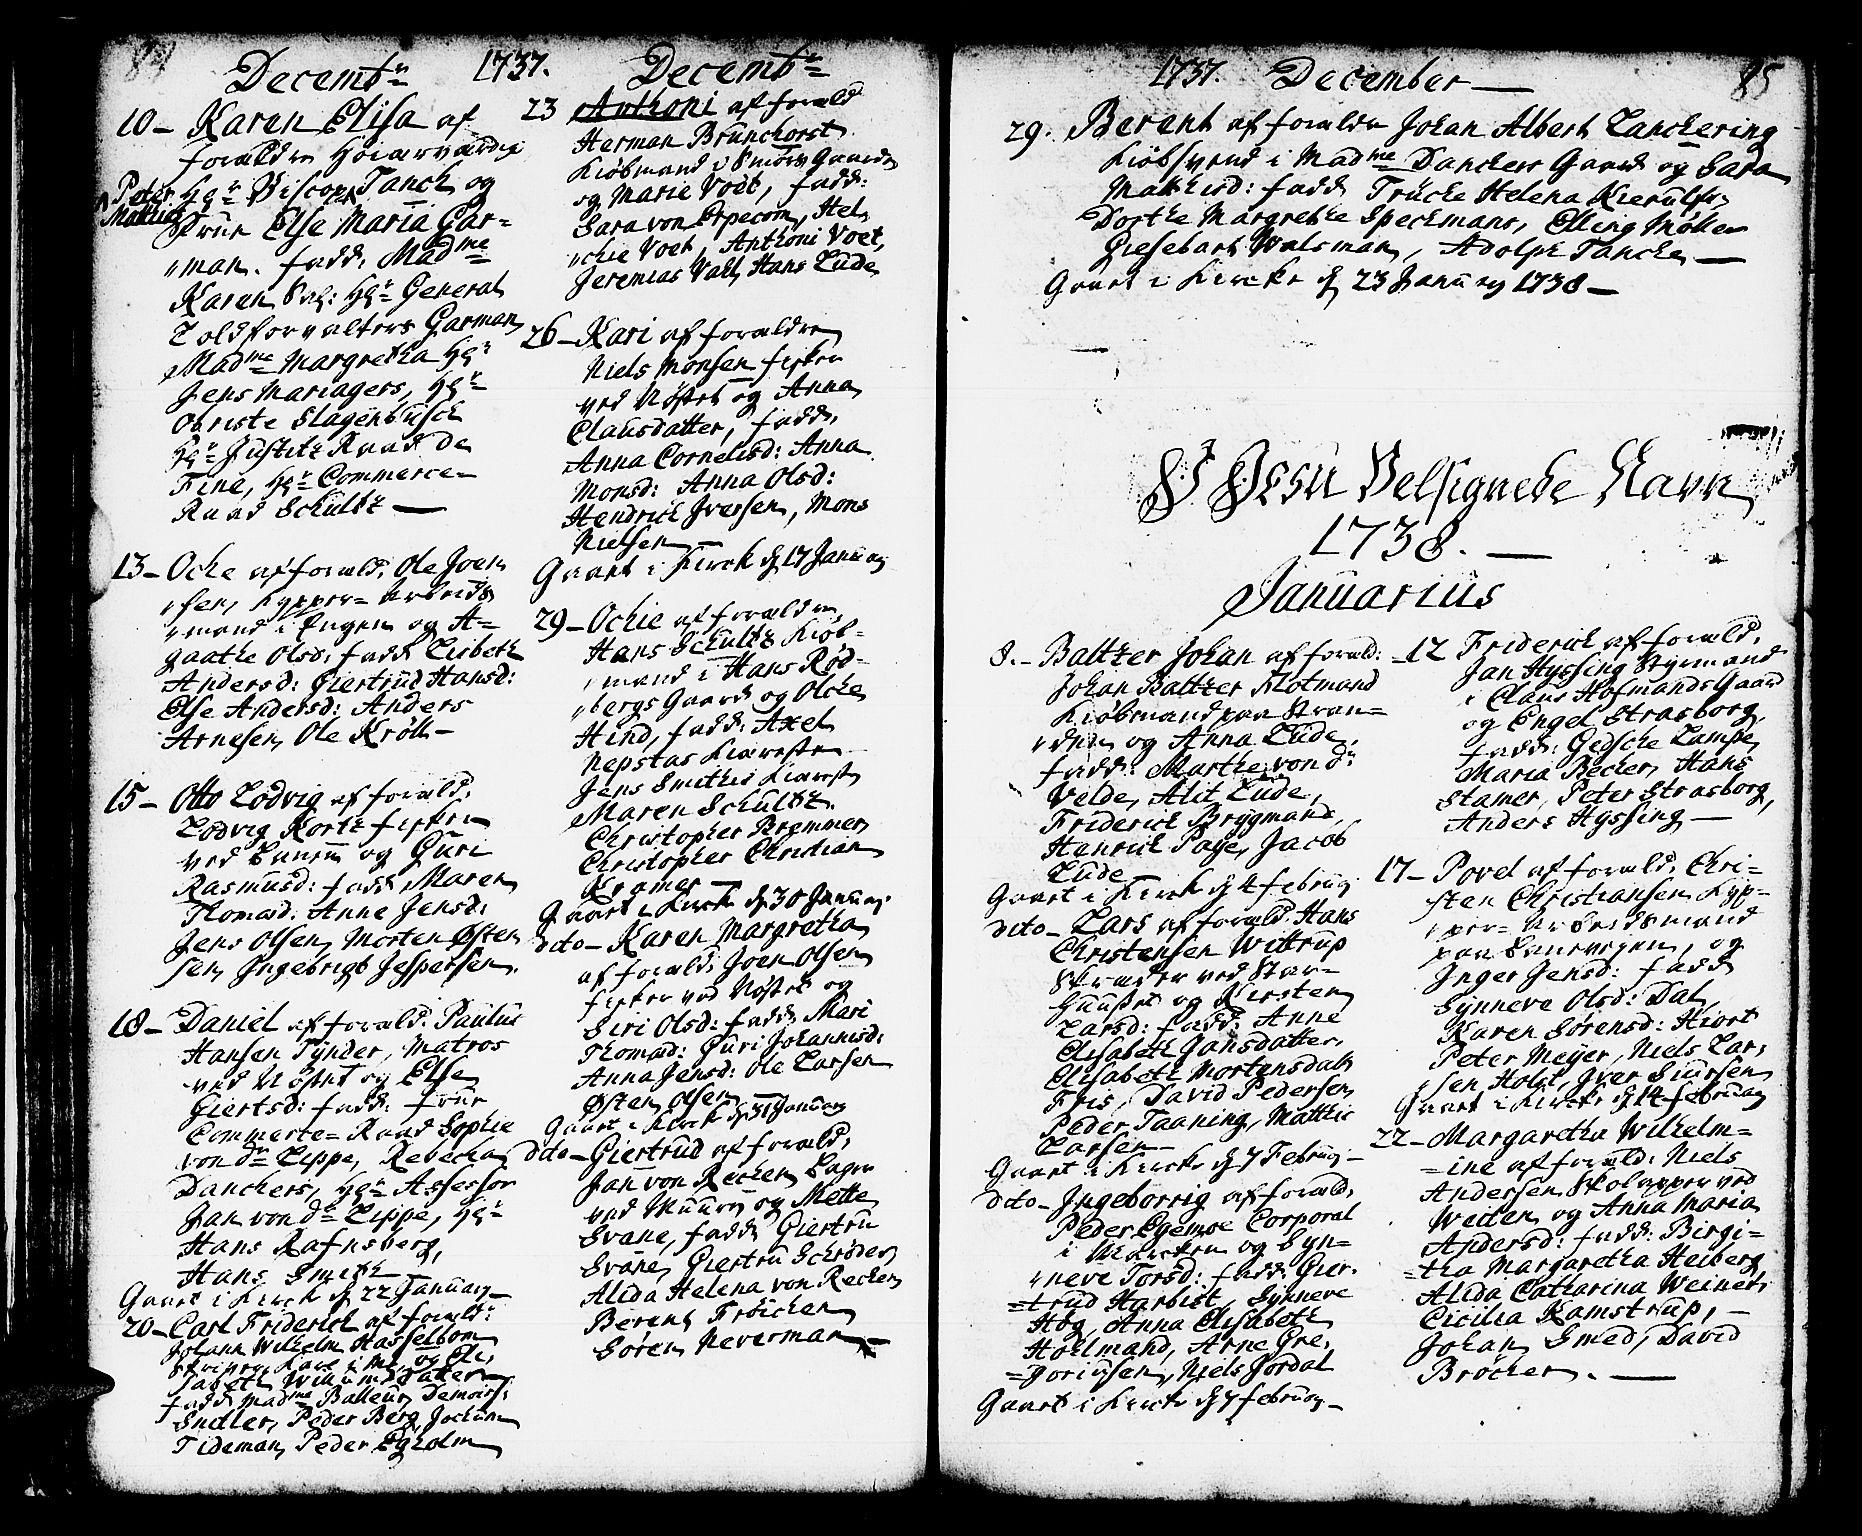 84
Decembr 1737.
10 - Karen Elisa af
forældre Høiærværdig
Peter Hr Biscop Tanch og
Mathias
Frue Else Maria Gar=
man. fadd. Madme
Karen Hr General
Toldforvalters Garman
Madme Margretha Hr
Jens Mariagers, Hr
Obriste Slagenbusch
Hr Justitz Raad de
Fine, Hr Commerce
Raad Schultz —
13 - Oche af foræld. Ole Joen
sen, Kypper= Arbeids
mand i Engen og A=
gaathe Olsd: fadd. Lisbeth
Andersd: Giertrud Hansd:
Else Andersd: Anders
Arnesen, Ole Krøll —
15 - Otto Lodvig af foræld.
Lodvig Kortz fisker
ved og Guri
Rasmusd: fadd. Maren
Thomasd. Anne Jensd.
Jens Olsen, Morten Østen
sen, Ingebrigt Jespersen.
18 - Daniel af foræld. Paulus
Hansen Tynder, Matros
ved Nøstet og Else
Giertsd: fadd: frue
Commerce= Raad Sophie
von dr Lippe, Rebecha
Danchers, Hr Assessor
Jan von dr Lippe, Hr
Hans Rafnsberg,
Hans Smith
Gaaet i Kirche d 22 January
20 - Carl Friderich af foræld:
Johann Wilhelm Hasselbom
og Eli,
sabeth Willumsdatter
fadd Madme Balleur, Demois:
Sndler, Peder Berg, Jochum
Tideman, Peder Egholm
Decembr
23 Anthoni af foræld
Herman Brunchorst
Kiøbmand i Smørs Gaarden
og Marie Voet, fadd:
Sara von Erpecom, Hel,
chie Voet, Anthoni Voet,
Jeremias Vall, Hans Lude
26 - Kari af forældre
Niels Monsen fisker
ved Nøstet og Anna
Clausdatter, fadd.
Anna Cornelisd: Anna
Monsd: Anna Olsd:
Hendrich Iversen, Mons
Nielsen —
Gaaet i Kirck d 17 January
29 - Ochie af forældre
Hans Schultz Kiøb=
mand i Hans Rød=
bergs Gaard og Olche
Hind, fadd: Axel
Nepstas Kiæreste
Jens Smithes Kiærest
Maren Schultz.
Christopher Bremmer
Christopher Christian
Kramer —
Gaaet i Kirck d 30 January
dito - Karen Margretha
af foræld. Joen Olsen
fisker ved Nøstet og
Siri Olsd: fadd. Mari
Thomasd: Guri Johannisd:
Anna Jensd: Ole Larsen
Østen Olsen
Gaaet i Kirck d 31 January
dito - Giertrud af foræld.
Jan von Recken, Bager
ved Muuren og Mette
Svane, fadd. Giertru
Svane, Giertru Schrøder
Alida Helena von Recken
Berent Frøichen
Søren Neverman —
1737. December —
85
29. Berent af forældre Johan Albert Lanchering
Kiøbsvend i Madme Danchers Gaard og Sara
Mathisd: fadd Trüche Helena Kierulfs,
Dorthe Margrethe Speckmans, Elling Møller
Giesebart Walsman, Adolph Tancke —
Gaaet i Kircke d 23 January 1738 —
I Jesu Velsignede Navn
1738. —
Januarius
8. - Baltzer Johan af foræld:
Johan Baltzer Flotmand
Kiøbmand paa Stran=
den og Anna Lude,
fadd: Marthe von dr
Velde, Alit Lude,
Friderich Brygmand,
Hanrich Paye, Jacob
Lude —
Gaaet i Kirck d 4 februg
dito - Lars af foræld. Hans
Christensen Wittrup
Skræder ved Stær=
Huuset og Kirsten
Larsd: fadd: Anne
Elisabeth Jansdatter,
Elisabeth Mortensdatr
Friis, David Pedersen,
Peder Taaning, Matthie
Larsen —
Gaaet i Kircke d 7 Februg —
dito - Ingeborrig af foræld.
Peder Egemoe Corporal
i Marcken og Syn=
neve Torsd: fadd. Gier.
=trud Harbist, Synneve
Høg, Anna Elisabeth
Hollmand, Arne Gre,
=goriusen, Niels Jordal
Gaaet i Kirck d 7 februg —
12 Friderich af foræld.
Jan Hyssing Styrmand
i Claus Hofmands Gaard
og Engel Strasborg,
fadd: Gedsche Lampe,
Maria Becker, Hans
Stamer, Peter Strasborg,
Anders Hyssing —
17 - Povel af foræld. Chri=
sten Christiansen Kyp=
per= Arbeidsmand
paa , og
Inger Jensd: fadd
Synneve Olsd: Dal,
Karen Sørensd: Hiort
Peter Meyer, Niels Lar,
sen Holst, Iver Siursen
Gaaet i Kircke d 14 februay
22 - Margaretha Wilhelm=
=ine af foræld: Niels
Andersen Skolapper ved
Weiten og Anna Maria
Andersd: fadd: Birgi=
=tha Margaretha Heiberg
Alida Catharina Weiner,
Cicilia Ramstrup, —
Johan Smed, David
Brøcker. —